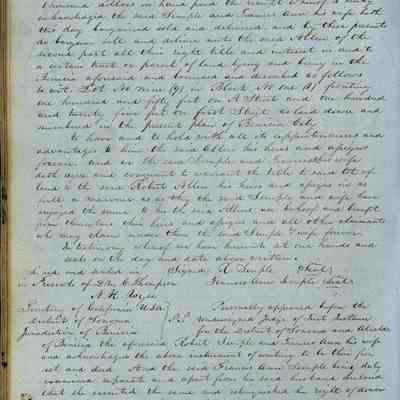 thousand dollars in hand paid the receipt whereof is hereby
acknowledged the said Semple and Frances Ann his wife hath
this day bargained sold and delivered and by these presents
do bargain sell and deliver unto the said Allen of the
second part all their right title and interest in and to
a certain tract or parcel of land lying and being in the
Benicia aforesaid and bounded and described as follows
to wit. Lot No nine (9) in Block No one (1) fronting
one hundred and fifty feet on A Street and one hundred
and twenty five feet on first Street as laid down and
numbered in the present plan of Benicia City
To have and to hold with all its appurtenances and
advantages to him the said Allen his heirs and assigns
forever and we the said Semple and Frances his wife
doth agree and covenant to warrant the title to said lot of
land to the said Robert Allen his heirs and assigns in as
full a manner as as they the said Semple and wife have
enjoyed the same to his the said Allens use behoof and benefit
from themselves their heirs and assigns and all other claimants
who may claim under them the said Semple & wife forever.
In testimony whereof we have hereunto set our hands and
seals on the day and date above written.
Signed and sealed in (Signed) R. Semple Seal
in Presence of Thompson Frances Ann Semple Seal
Territory of California U.S.A. Personally appeared before the
District of Sonoma SS. undersigned Judge of first Instance
Jurisdiction of Benicia for the District of Sonoma and Alcalde
of Benicia the aforesaid Robert Semple and Frances Ann his wife
and acknowledged the above instrument of writing to be their free
act and deed And the said Frances Ann Semple being duly
examined separate and apart from her said husband declared
that she executed the same and relinquished her right of dower